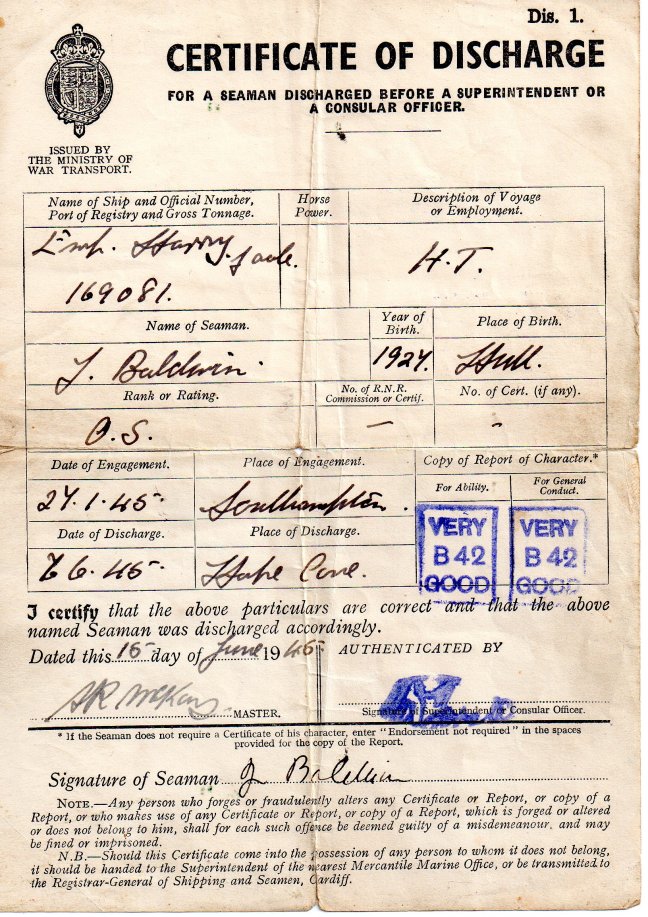 Dis. 1.
CERTIFICATE OF DISCHARGE
FOR A SEAMAN DISCHARGED BEFORE A SUPERINTENDENT OR
A CONSULAR OFFICER.
ISSUED BY
THE MINISTRY OF
WAR TRANSPORT.
Name of Ship and Official Number,
Port of Registry and Gross Tonnage.
Horse
Power.
Description of Voyage
or Employment.
Emp. Harry
169081.
H.T.
Name of Seaman.
Year of
Birth.
Place of Birth.
J. Baldwin.
1927.
Hull.
Rank or Rating.
No. of R.N.R.
Commission or Certif.
No. of Cert. (if any).
O.S.
—
-
Date of Engagement.
Place of Engagement.
Copy of Report of Character.*
For Ability.
For General
Conduct.
27.1.45
Southampton.
VERY
B 42
GOOD
VERY
B 42
GOOD
Date of Discharge.
Place of Discharge.
6.45
Cove.
I certify that the above particulars are correct and that the above
named Seaman was discharged accordingly.
Dated this 15 day of June 1945
AUTHENTICATED BY
MASTER.
Signature of Superintendent or Consular Officer.
* If the Seaman does not require a Certificate of his character, enter "Endorsement not required" in the spaces
provided for the copy of the Report.
Signature of Seaman J Baldwin
NOTE.—Any person who forges or fraudulently alters any Certificate or Report, or copy of a
Report, or who makes use of any Certificate or Report, or copy of a Report, which is forged or altered
or does not belong to him, shall for each such offence be deemed guilty of a misdemeanour, and may
be fined or imprisoned.
N.B.—Should this Certificate come into the possession of any person to whom it does not belong,
it should be handed to the Superintendent of the nearest Mercantile Marine Office, or be transmitted to
the Registrar-General of Shipping and Seamen, Cardiff.